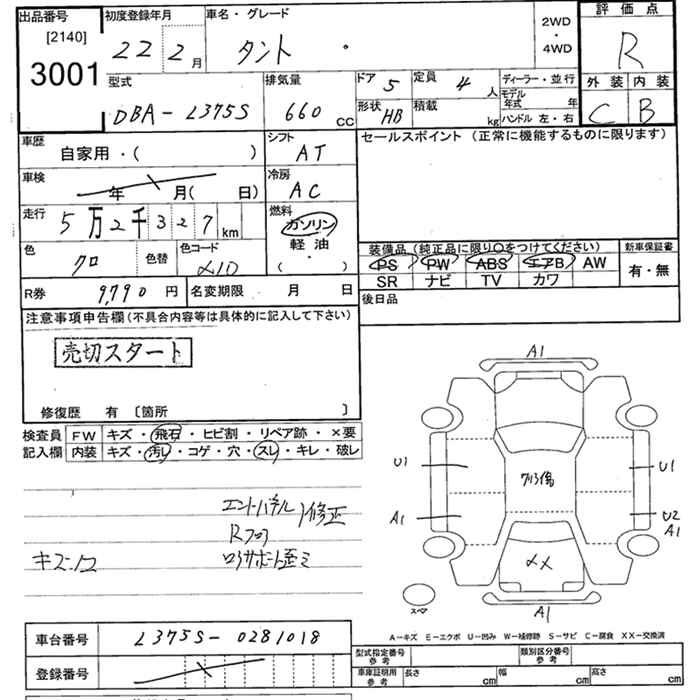 出品番号 初度登録年月 車名・グレード 2WD ・ 4WD 評価点
[2140]
3001 22年 2月 タント ・ R
型式 排気量 ドア 5 定員 4人 ディーラー・並行 外装 内装
DBA-L375S 660 CC 形状 HB 積載 kg モデル年式 年 ハンドル 左・右 C B
車歴 自家用・( ) シフト AT セールスポイント (正常に機能するものに限ります)
車検 年 月( 日) 冷房 AC
走行 5万2千327km 燃料 ガソリン 軽油 ( ・ )
色 クロ 色替 色コード 装備品 (純正品に限り○をつけてください) 新車保証書
PS PW ABS エアB AW 有・無
SR ナビ TV カワ
R券 9,790円 名変期限 月 日 後日品
注意事項申告欄(不具合内容等は具体的に記入して下さい)
売切スタート
修復歴 有 〔箇所 〕
検査員記入欄 FW キズ・飛石・ヒビ割・リペア跡・×要
内装 キズ・汚レ・コゲ・穴・スレ・キレ・破レ
A1
U1 U1
A1 U2
A1
XX
A1
スペア
修正
Rフロア
キズ凹
A-キズ E-エクボ U-凹み W-補修跡 S-サビ C-腐食 XX-交換済
車台番号 L375S-0281018
登録番号
型式指定番号 参考 類別区分番号 参考
車庫証明用 参考 長さ cm 幅 cm 高さ cm